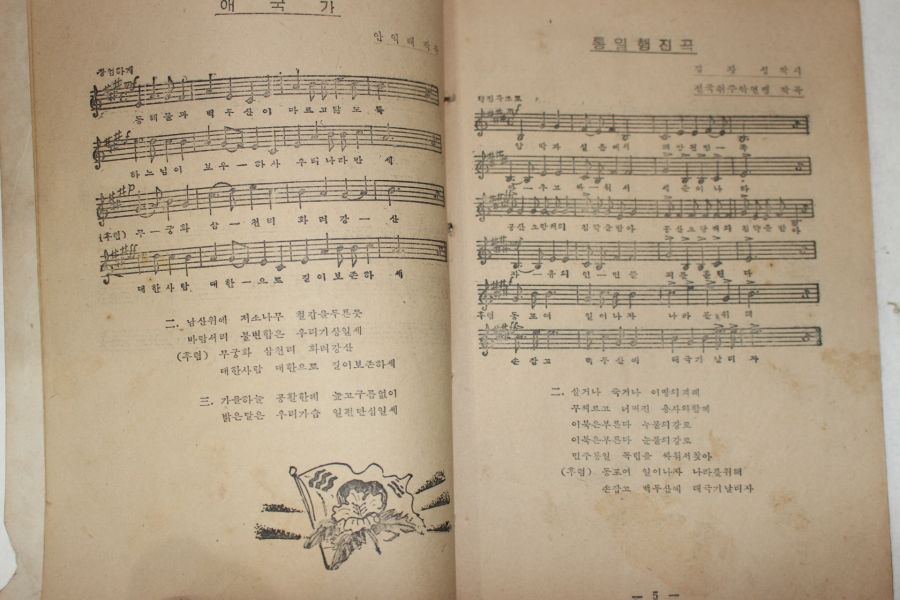 애국가
안익태 작곡
장엄하게
동해물과 백두산이 마르고닳도록
하느님이 보우ー하사 우리나라만세
(후렴) 무ー궁화 삼ー천리 화려강ー산
대한사람 대한ー으로 길이보존하세
二. 남산위에 저소나무 철갑을두른듯
바람서리 불변함은 우리기상일세
(후렴) 무궁화 삼천리 화려강산
대한사람 대한으로 길이보존하세
三. 가을하늘 공활한데 높고구름없이
밝은달은 우리가슴 일편단심일세
통일행진곡
김광섭 작시
전국취주악연맹 작곡
압박과 설움에서 해방된민ー족
싸ー우고 싸ー워서 세운이나라
공산 오랑캐의 침략을받아 공산오랑캐의 침략을받아
자ー유의 인ー민들 피를 흘린다
후렴 동포여 일어나자 나라를위해
손잡고 백두산에 태극기날리자
二. 살거나 죽거나 이땅의겨레
무찌르고 넘어진 용사와함께
이북은부른다 눈물의강토
이북은부른다 눈물의강토
민주통일 독립을 싸워서찾아
(후렴) 동포여 일어나자 나라를위해
손잡고 백두산에 태극기날리자
— 5 —